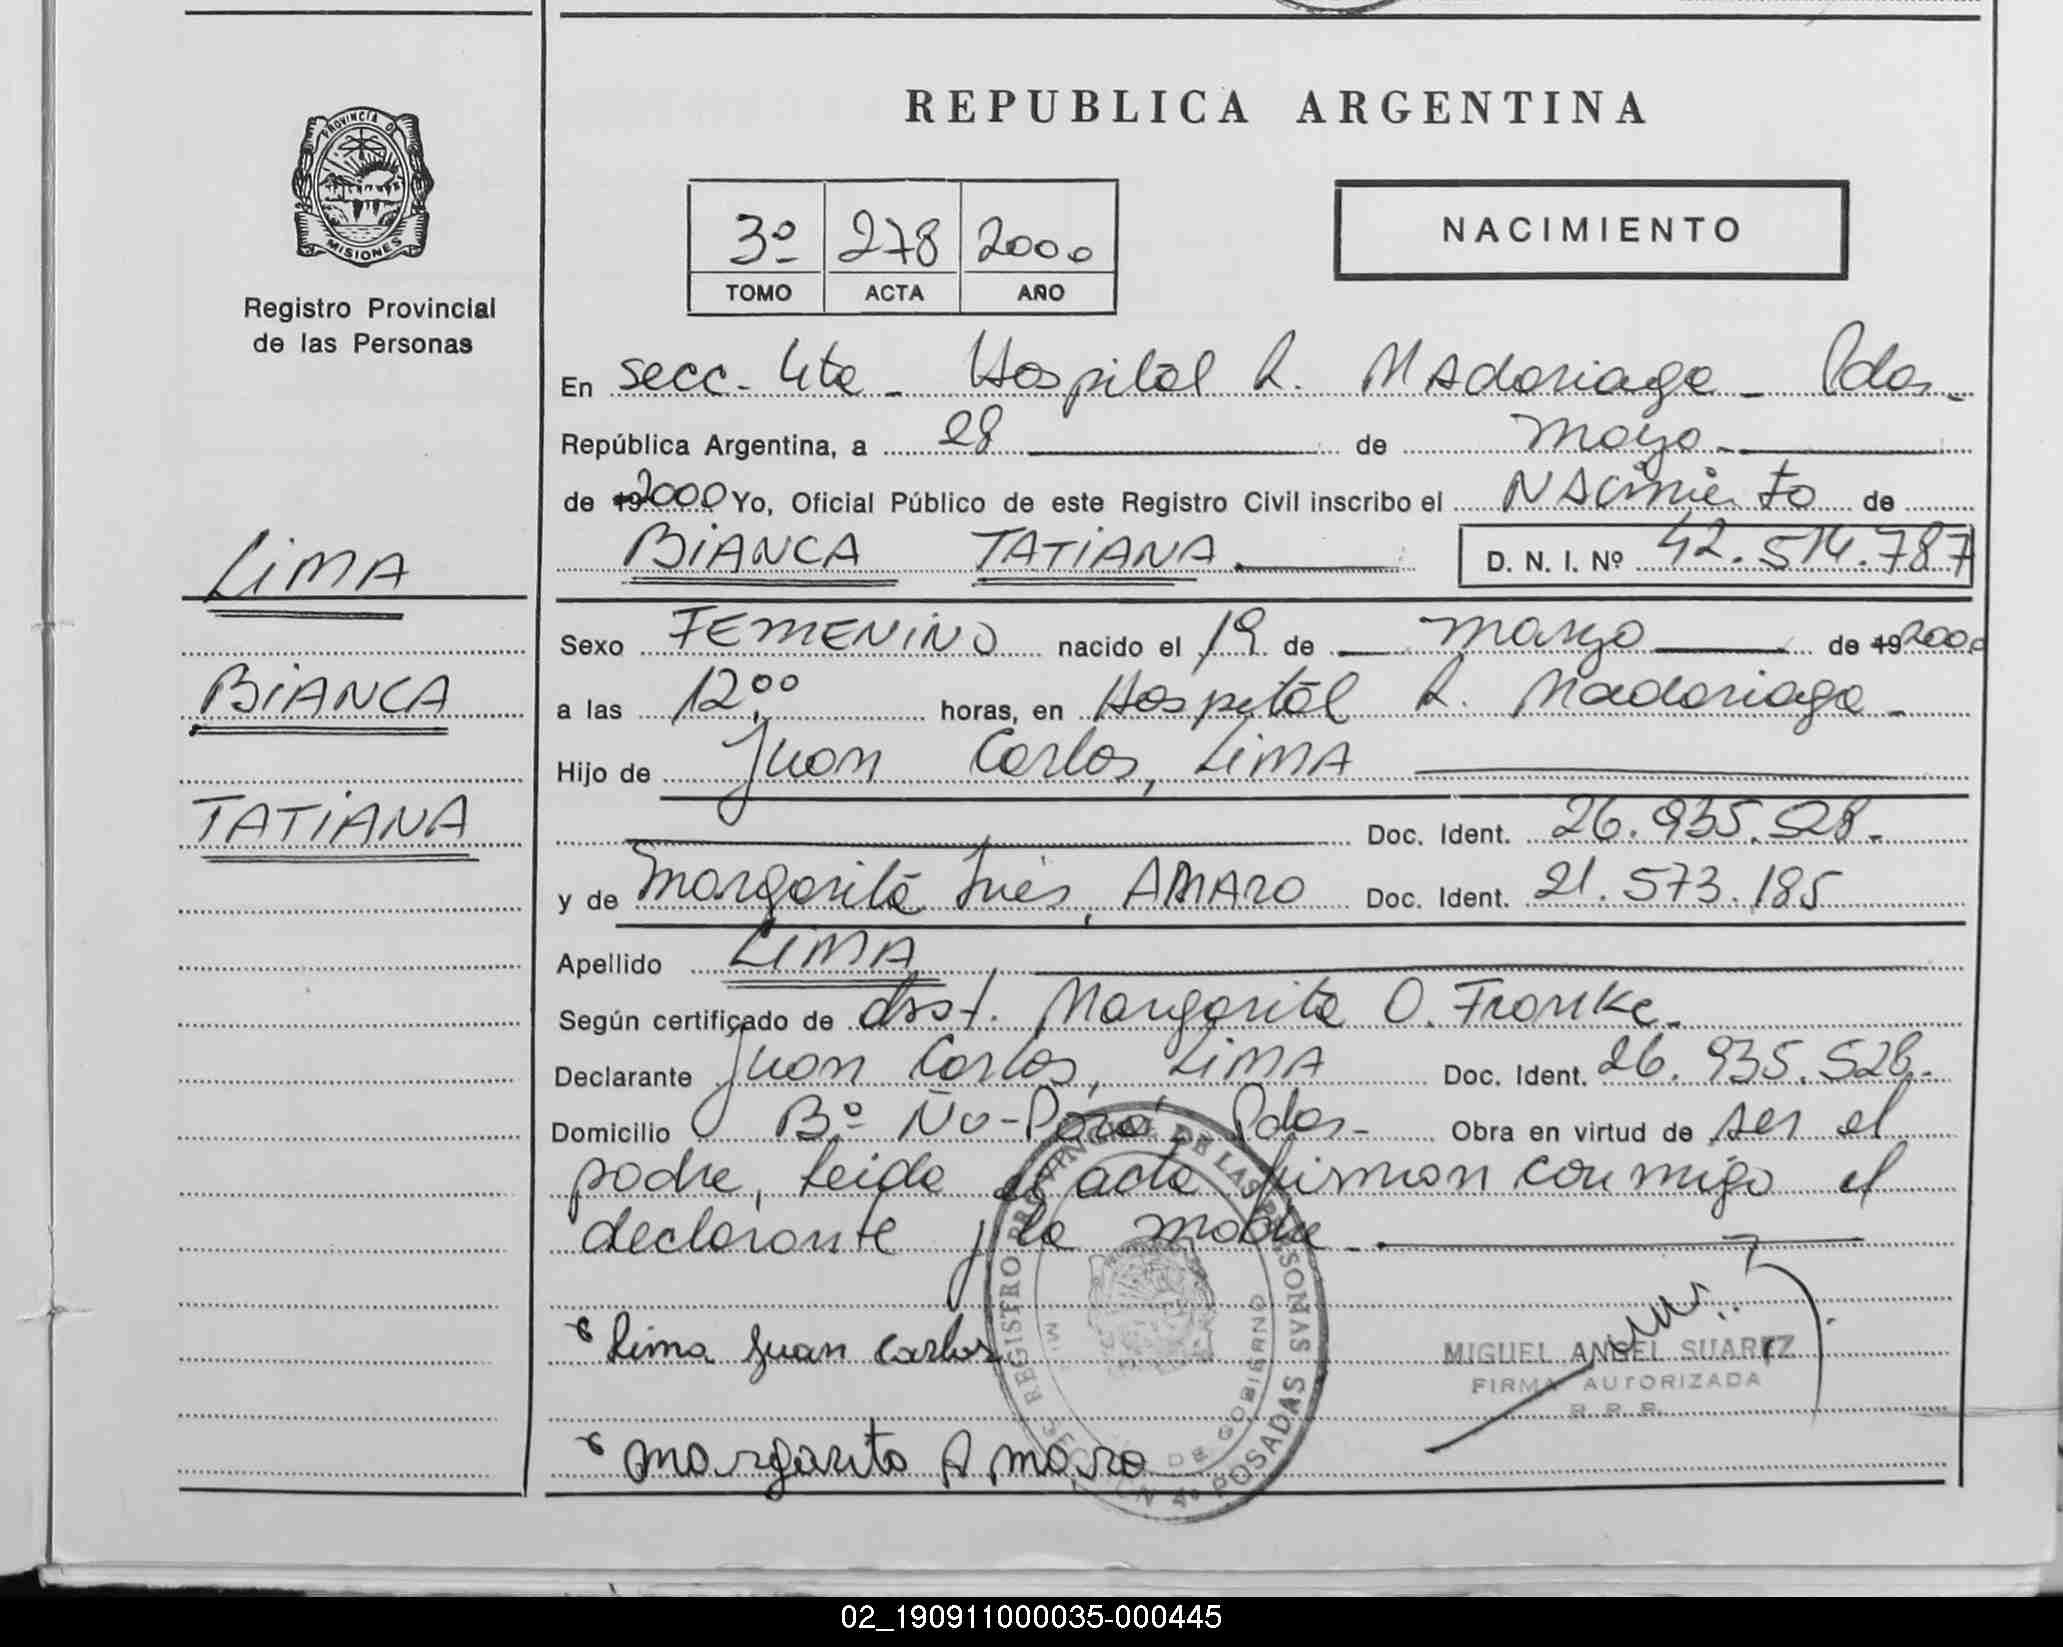 REPUBLICA ARGENTINA
PROVINCIA D
MISIONES
Registro Provincial
de las Personas
3º 278 2000
TOMO ACTA AÑO
NACIMIENTO
En secc. 4ta - Hospital R. Madariaga - Pdas.-
República Argentina, a 28 de mayo
de 19 2000 Yo, Oficial Público de este Registro Civil inscribo el NAcimiento de
BIANCA TATIANA D. N. I. Nº 42.514.787
LIMA
BIANCA
TATIANA
Sexo FEMENINO nacido el 19 de marzo de 19 2000
a las 12,00 horas, en Hospital R. Madariaga -
Hijo de Juan Carlos, LIMA
Doc. Ident. 26.935.528.-
y de Margarita Inés, AMARO Doc. Ident. 21.573.185
Apellido LIMA
Según certificado de obst. Margarita O. Franke.
Declarante Juan Carlos, LIMA Doc. Ident. 26.935.528.-
Domicilio Bº Ñu-Porá Pdas.- Obra en virtud de ser el
padre, leida el acta firman conmigo el
declarante y la madre -
Lima Juan Carlos
MIGUEL ANGEL SUAREZ
FIRMA AUTORIZADA
R. P. P.
Margarita Amaro
REGISTRO PROVINCIAL DE LAS PERSONAS
DE GOBIERNO
SECCION 4ª POSADAS
02_190911000035-000445